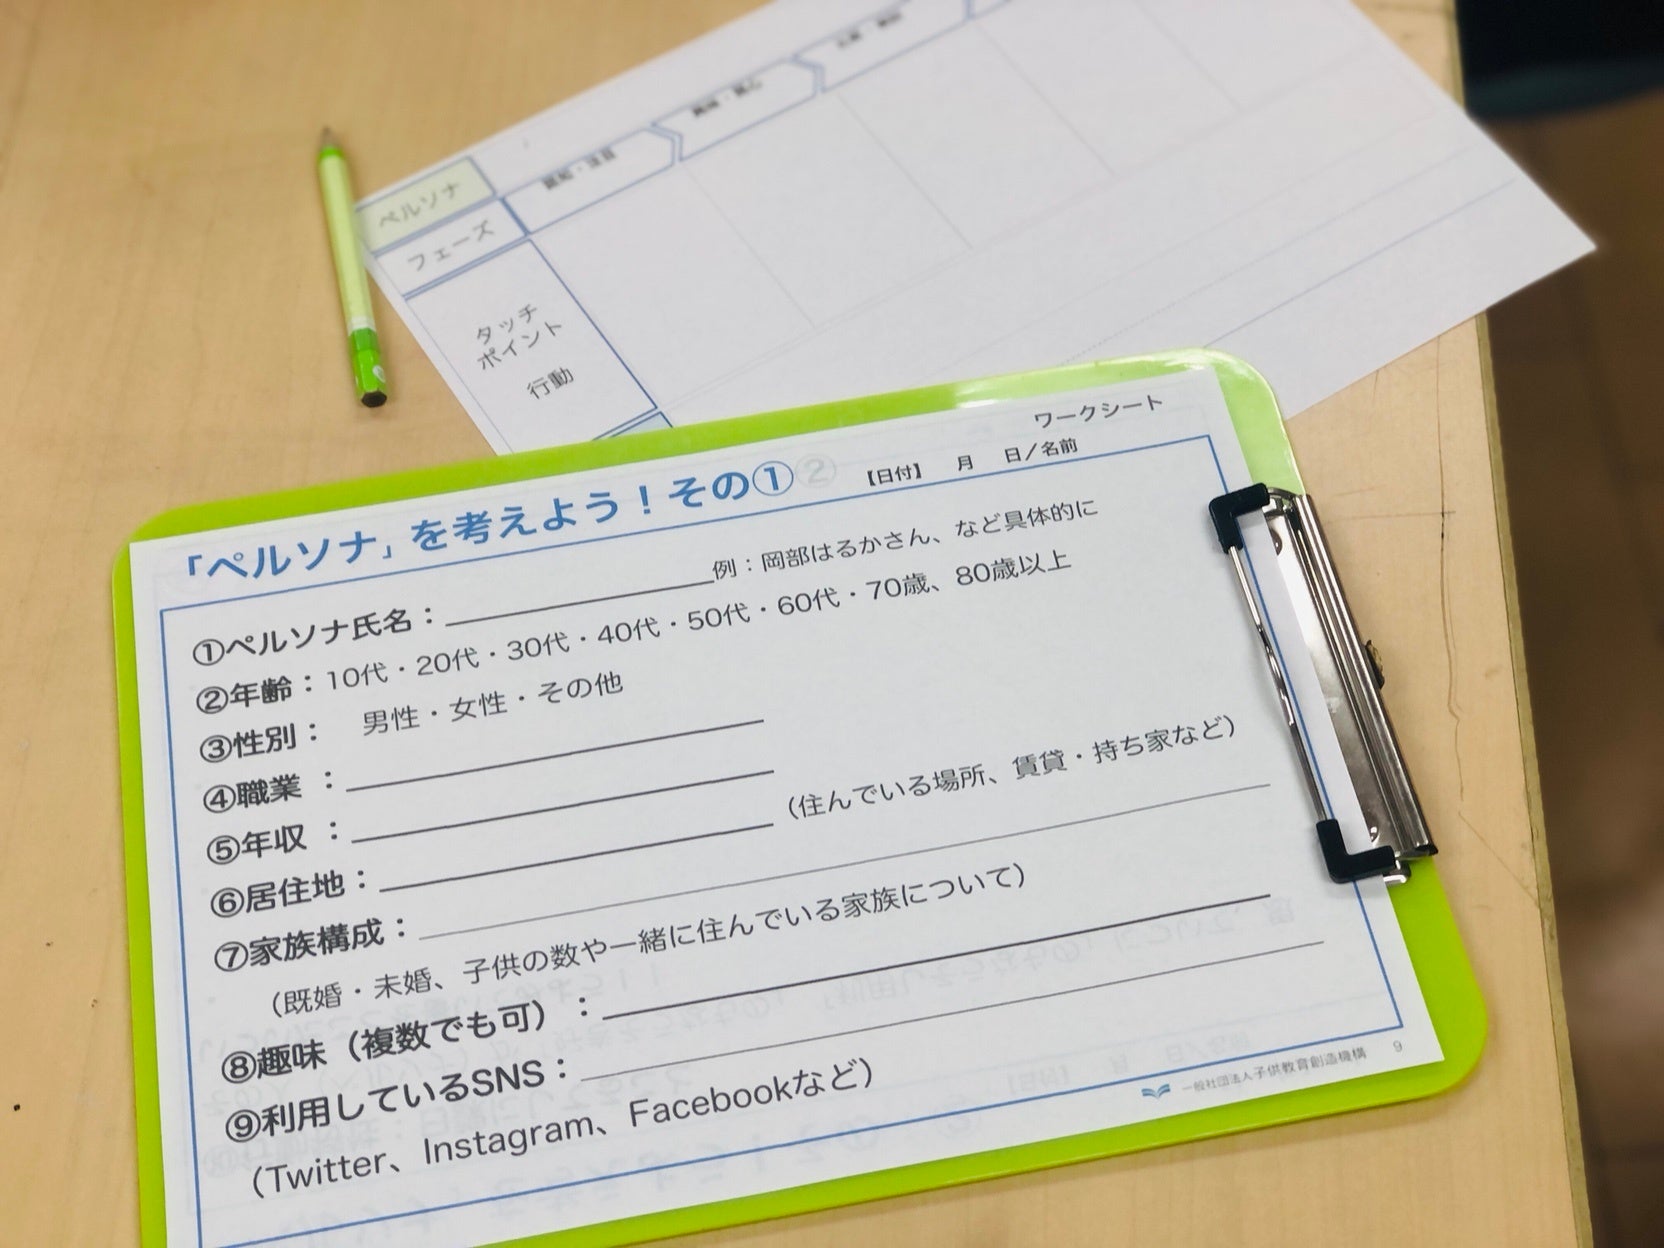 ペルソナ
フェーズ
タッチ
ポイント
行動
ワークシート
「ペルソナ」を考えよう！その①②
【日付】　月　日／名前
①ペルソナ氏名：＿＿＿＿＿＿例：岡部はるかさん、など具体的に
②年齢：10代・20代・30代・40代・50代・60代・70歳、80歳以上
③性別：　男性・女性・その他
④職業　：
⑤年収　：
⑥居住地：＿＿＿＿＿＿（住んでいる場所、賃貸・持ち家など）
⑦家族構成：
（既婚・未婚、子供の数や一緒に住んでいる家族について）
⑧趣味（複数でも可）：
⑨利用しているSNS：
（Twitter、Instagram、Facebookなど）
一般社団法人子供教育創造機構　9